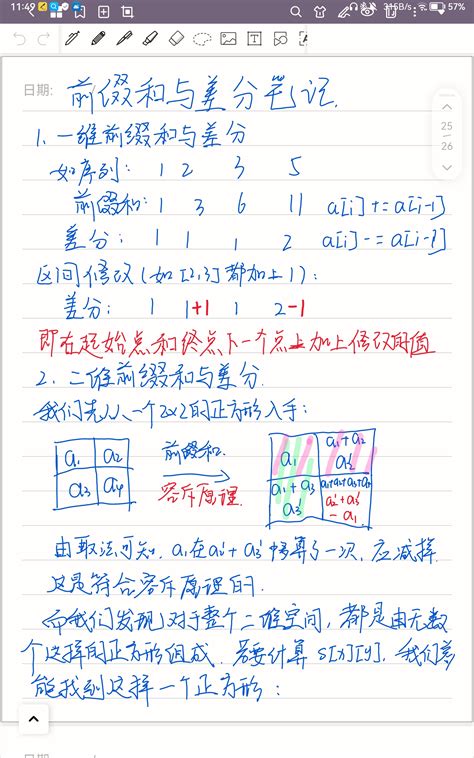 11:49 315B/s 57%
日期:
前缀和与差分笔记.
25
26
1. 一维前缀和与差分
如序列: 1 2 3 5
前缀和: 1 3 6 11 a[i]+=a[i-1]
差分: 1 1 1 2 a[i]-=a[i-1]
区间修改(如[2,3]都加上1):
差分: 1 1+1 1 2-1
即在起始点和终点下一个点上加上修改的值
2. 二维前缀和与差分.
我们先从一个2x2的正方形入手:
a1 a2 前缀和. a1 a1+a2 a2'
a3 a4 容斥原理. a1+a3 a3' a1+a2+a3+a4 a2'+a3' -a1
由取法可知. a1在a2'+a3'中多算了一次, 应减掉
这是符合容斥原理的.
而我们发现对于整个二维空间, 都是由无数
个这样的正方形组成. 若要计算s[x][y], 我们
能找到这样一个正方形: